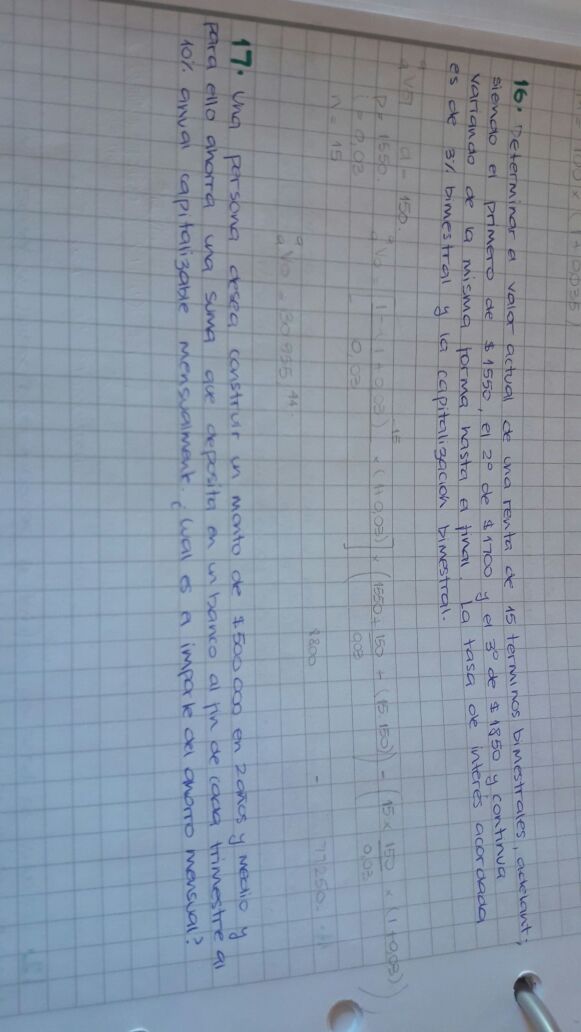 16. Determinar a valor actual de una renta de 15 terminos bimestrales, adelant;
siendo el primero de $1550, el 2º de $1700 y el 3º de $1850 y continua
variando de la misma forma hasta el final. La tasa de interés acordada
es de 3% bimestral y la capitalización bimestral.
a = 150.
p = 1550.
i = 0,03
n = 15
1 - (1+0,03)⁻¹⁵ × (1+0,03)] × (1550 + 150 + (15.150)) - (15 × 150 × (1+0,03))
0,03 0,03 0,03
8800 - 77250.
Va = 30955,44.
17. Una persona desea construir un monto de $500000 en 2 años y medio y
para ello ahorra una suma que deposita en un banco al fin de cada trimestre al
10% anual capitalizable mensualmente. ¿Cual es a importe del ahorro mensual?